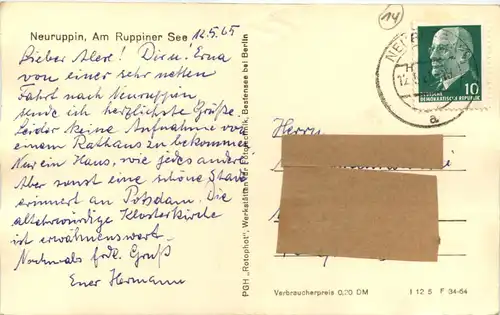 Neuruppin, Am Ruppiner See 12.5.65
14
Lieber Alex! Dir u. Erna
von einer sehr netten
Fahrt nach Neuruppin
sende ich herzlichste Grüße.
Leider keine Aufnahme von
einem Rathaus zu bekommen.
Nur ein Haus, wie jedes andere.
Aber sonst eine schöne Stadt
erinnert an Potsdam. Die
altehrwürdige Klosterkirche
ist erwähnenswert.
Nochmals frdl. Gruß
Euer Hermann
PGH „Rotophot“, Werkstätten für Fototechnik, Bestensee bei Berlin
DEUTSCHE
DEMOKRATISCHE REPUBLIK
10
a
Herrn
Verbraucherpreis 0,20 DM
I 12 5 F 34-64